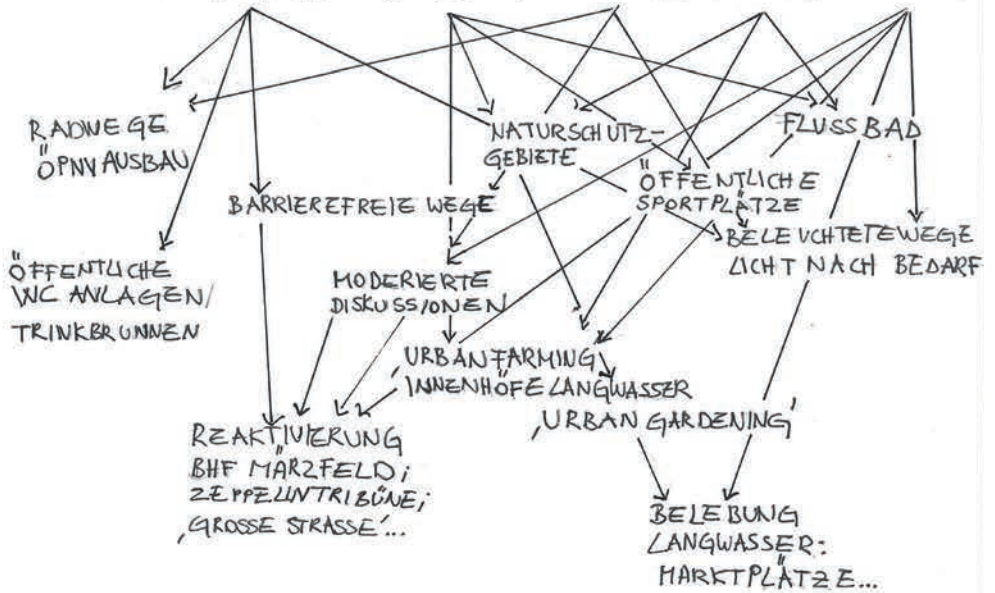 RADWEGE
ÖPNV AUSBAU
NATURSCHUTZ-
GEBIETE
FLUSSBAD
BARRIEREFREIE WEGE
ÖFFENTLICHE
SPORTPLÄTZE
BELEUCHTETE WEGE
LICHT NACH BEDARF
ÖFFENTLICHE
WC ANLAGEN/
TRINKBRUNNEN
MODERIERTE
DISKUSSIONEN
‚URBAN FARMING
INNENHÖFE LANGWASSER
‚URBAN GARDENING'
REAKTIVIERUNG
BHF MÄRZFELD;
ZEPPELINTRIBÜNE;
‚GROSSE STRASSE'...
BELEBUNG
LANGWASSER:
MARKTPLÄTZE...